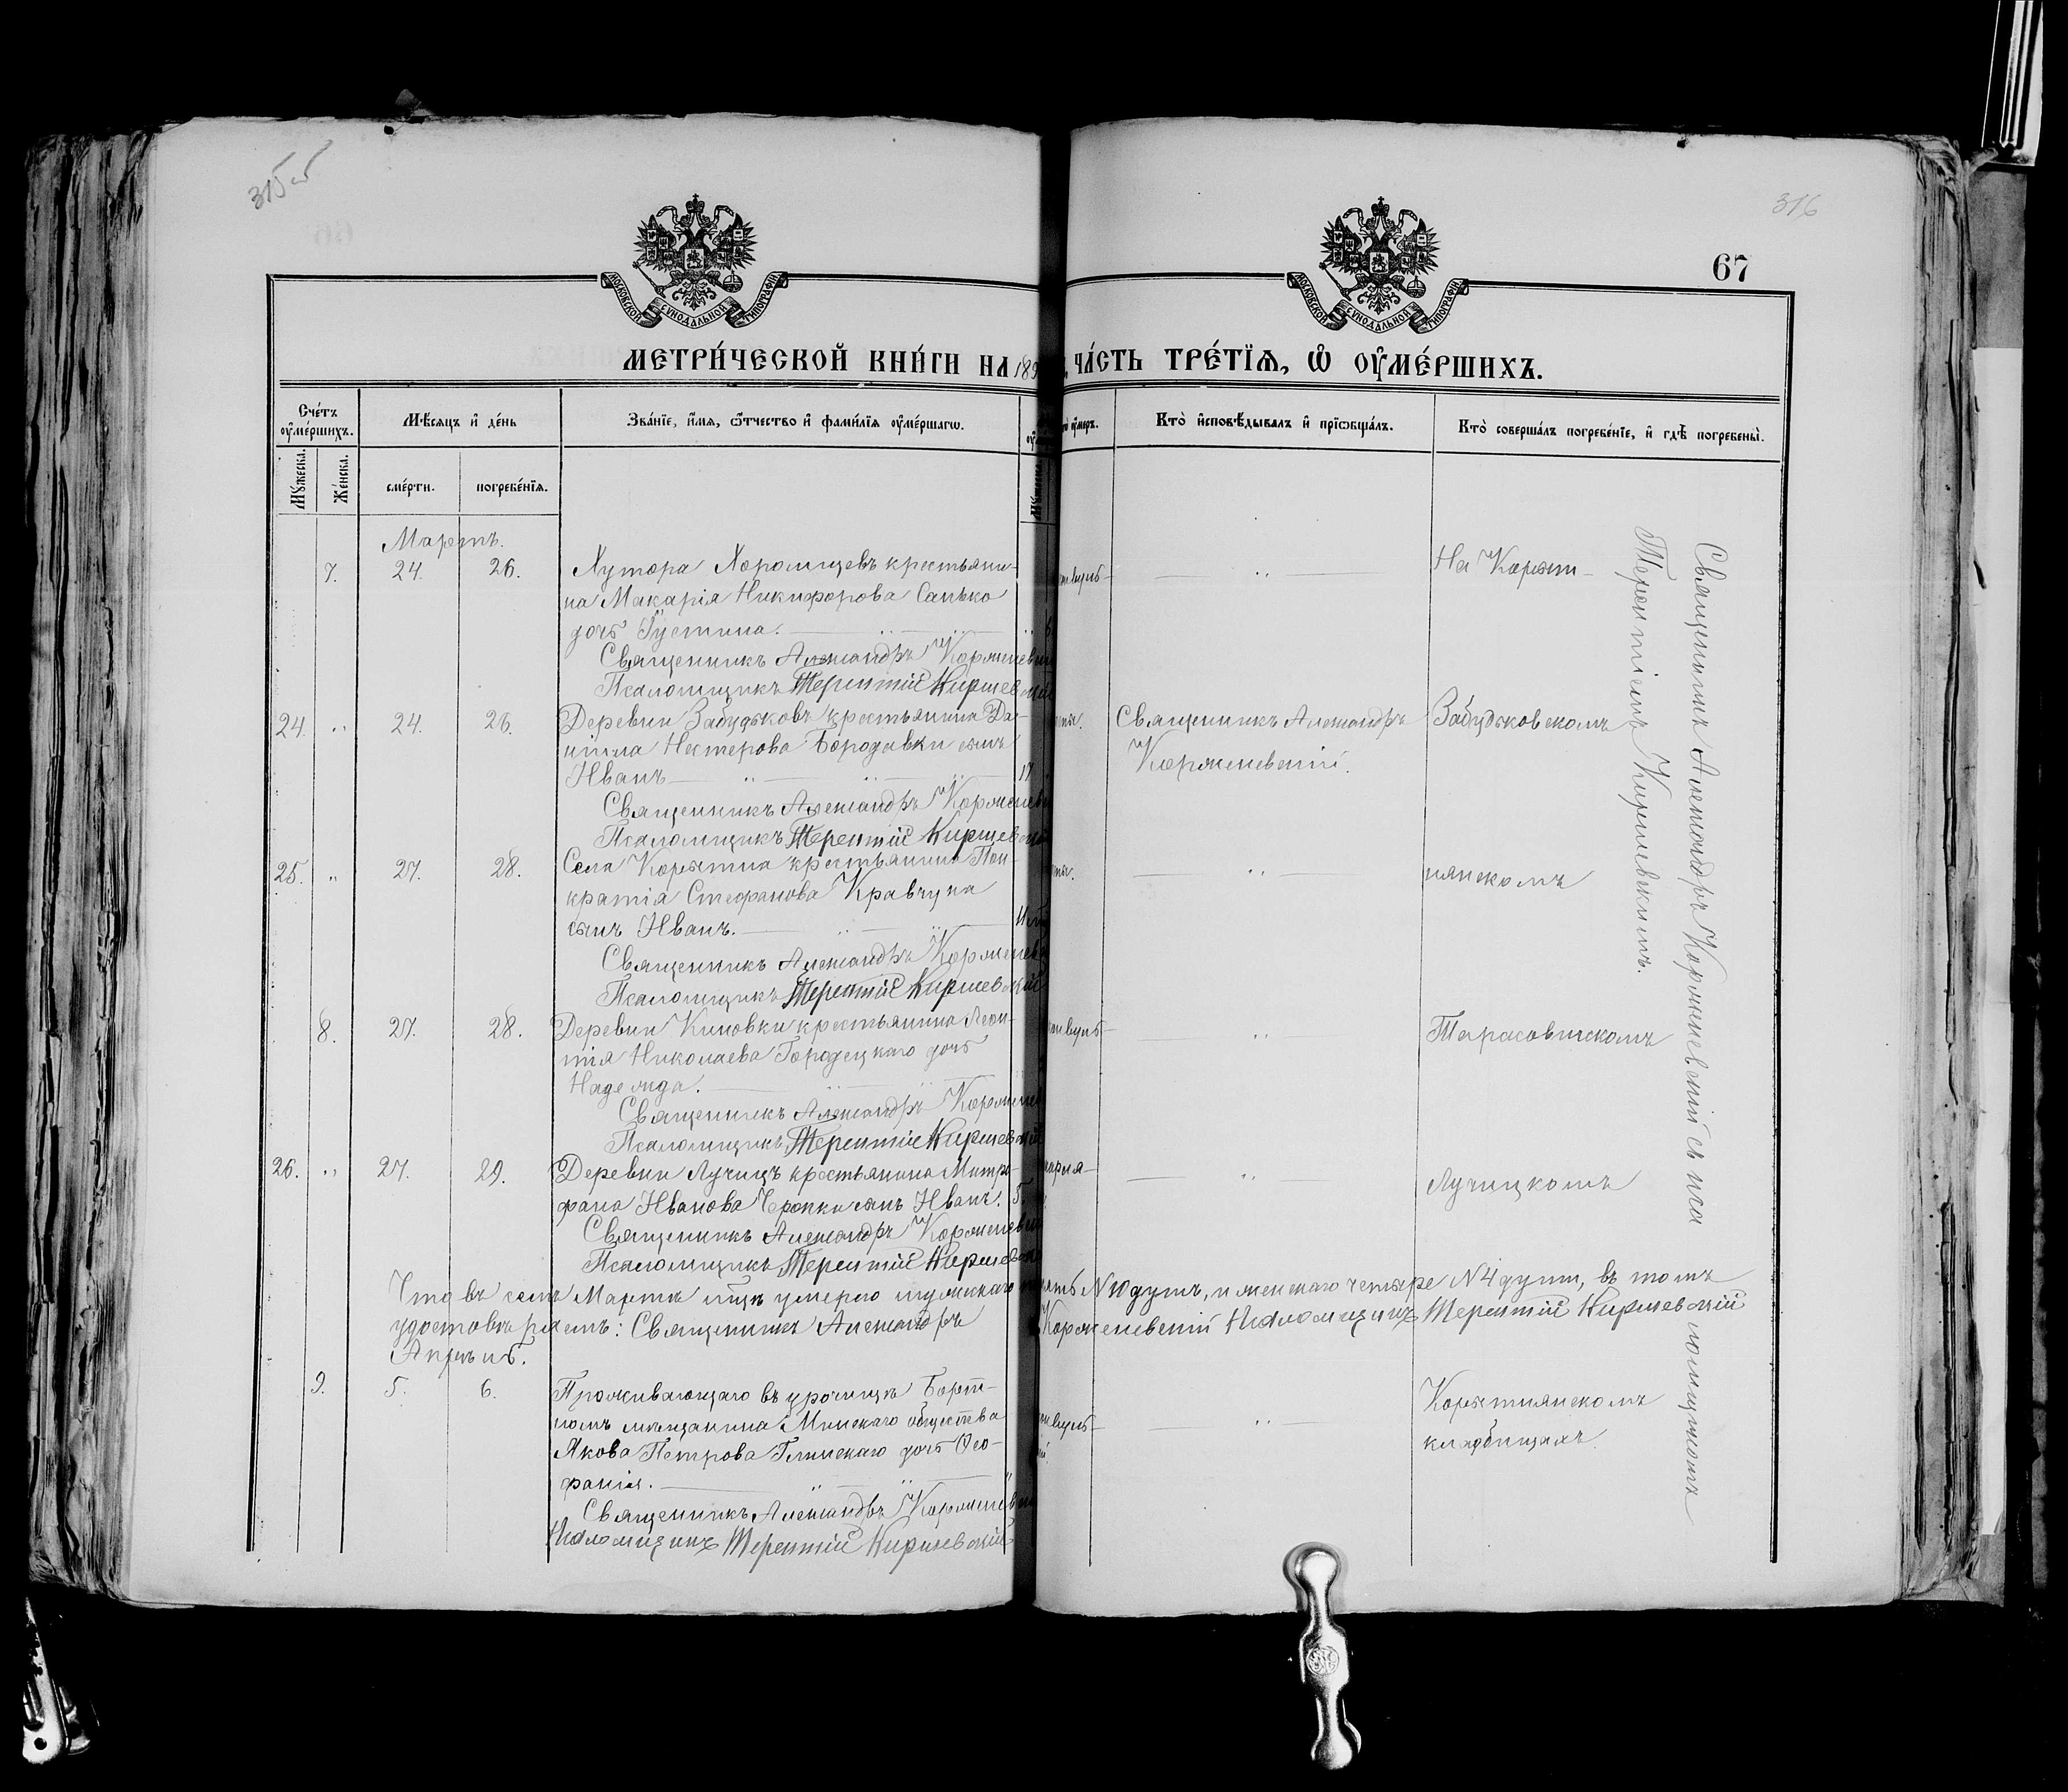 315об
316
67
МОСКОВСКОЙ СУНОДАЛЬНОЙ ТИПОГРАФІИ
МОСКОВСКОЙ СУНОДАЛЬНОЙ ТИПОГРАФІИ
МЕТРИ́ЧЕСКОЙ КНИ́ГИ НА 189
ЧА́СТЬ ТРЕ́ТІѦ, Ѡ ОУМЕ́РШИХЪ.
Сче́тъ оуме́ршихъ.
Мѣ́сяцъ и де́нь
Зва́нїе, и́мя, ѻ́тчество и фами́лїя оуме́ршагѡ.
Кто̀ исповѣ́дывалъ и прїѡбща́лъ.
Кто̀ соверша́лъ погребе́нїе, и гдѣ̀ погребены̀.
Мꙋ́жеска.
Же́нска.
сме́рти.
погребе́нїя.
Мартъ.
7. 24. 26. Хутора Хоромцевъ крестьяни-
на Макарія Никифорова Санько
дочь Іустина.
Священникъ Александръ Корженев
Псаломщикъ Терентій Киркев
На Корѣт-
24. „ 24. 26. Деревни Забудьковъ крестьянина Да-
ніила Нестерова Бородавки сынъ
Иванъ 17
Священникъ Александръ Корженев
Псаломщикъ Терентій
Священникъ Александръ
Корженевскій.
Забудьковскомъ
25. „ 27. 28. Села Корѣтна крестьянина Пан-
кратія Стефанова Кравчука
сынъ Иванъ.
Священникъ Александръ Корженев
Псаломщикъ Терентій
нянскомъ
8. 27. 28. Деревни Киновки крестьянина Леон-
тія Николаева Городецкаго дочь
Надежда.
Священникъ Александръ Коржен
Псаломщикъ Терентій
Тарасовичскомъ
26. „ 27. 29. Деревни Лучицъ крестьянина Митро-
фана Иванова сынъ Иванъ. 5.
Священникъ Александръ Корженев
Псаломщикъ Терентій
Лучицкомъ
Что въ семъ Мартѣ м-цѣ умерло мужскаго N 10 душъ, и женскаго четыре N 4 душъ, въ томъ
удостовѣряемъ: Священникъ Александръ Корженевскій Псаломщикъ Терентій
Апрѣль.
9. 5. 6. Проживающаго въ урочищѣ Борт-
номъ мѣщанина Минскаго общества
Якова Петрова Глинскаго дочь Ѳео-
фанія.
Священникъ Александръ Корженев
Псаломщикъ Терентій
Корѣтнянскомъ
кладбищахъ.
Священникъ Александръ Корженевскій съ псаломщикомъ
Терентіемъ